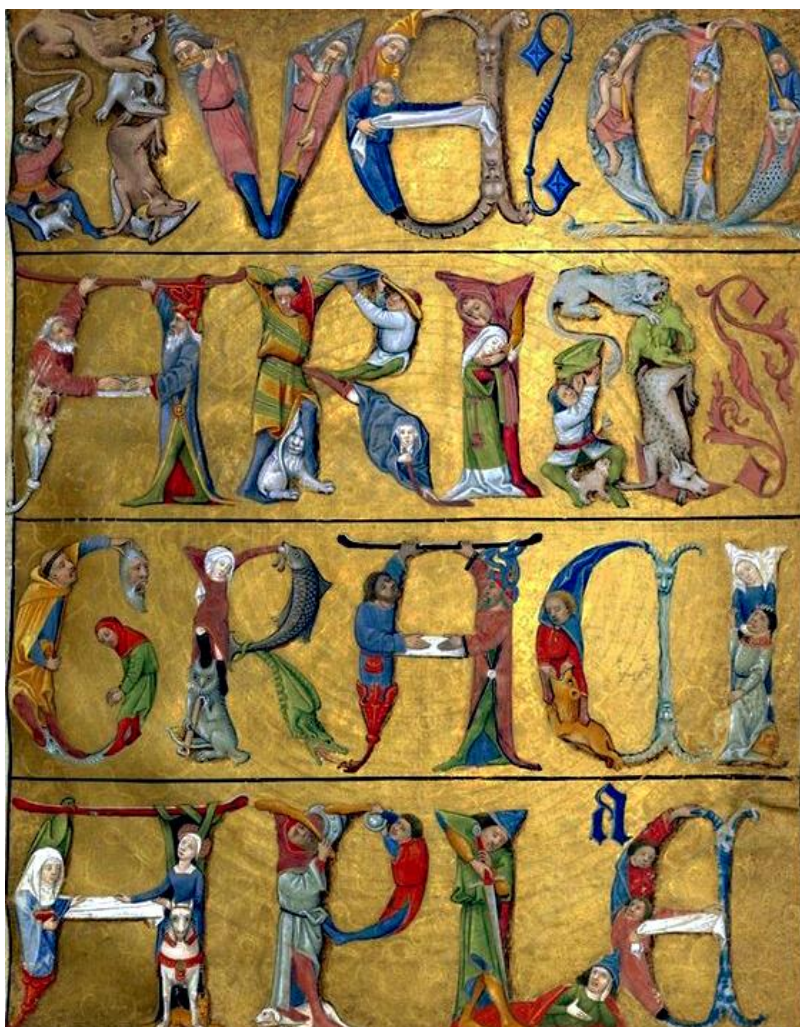 AVE M
ARIA
GRACI
A PLE a